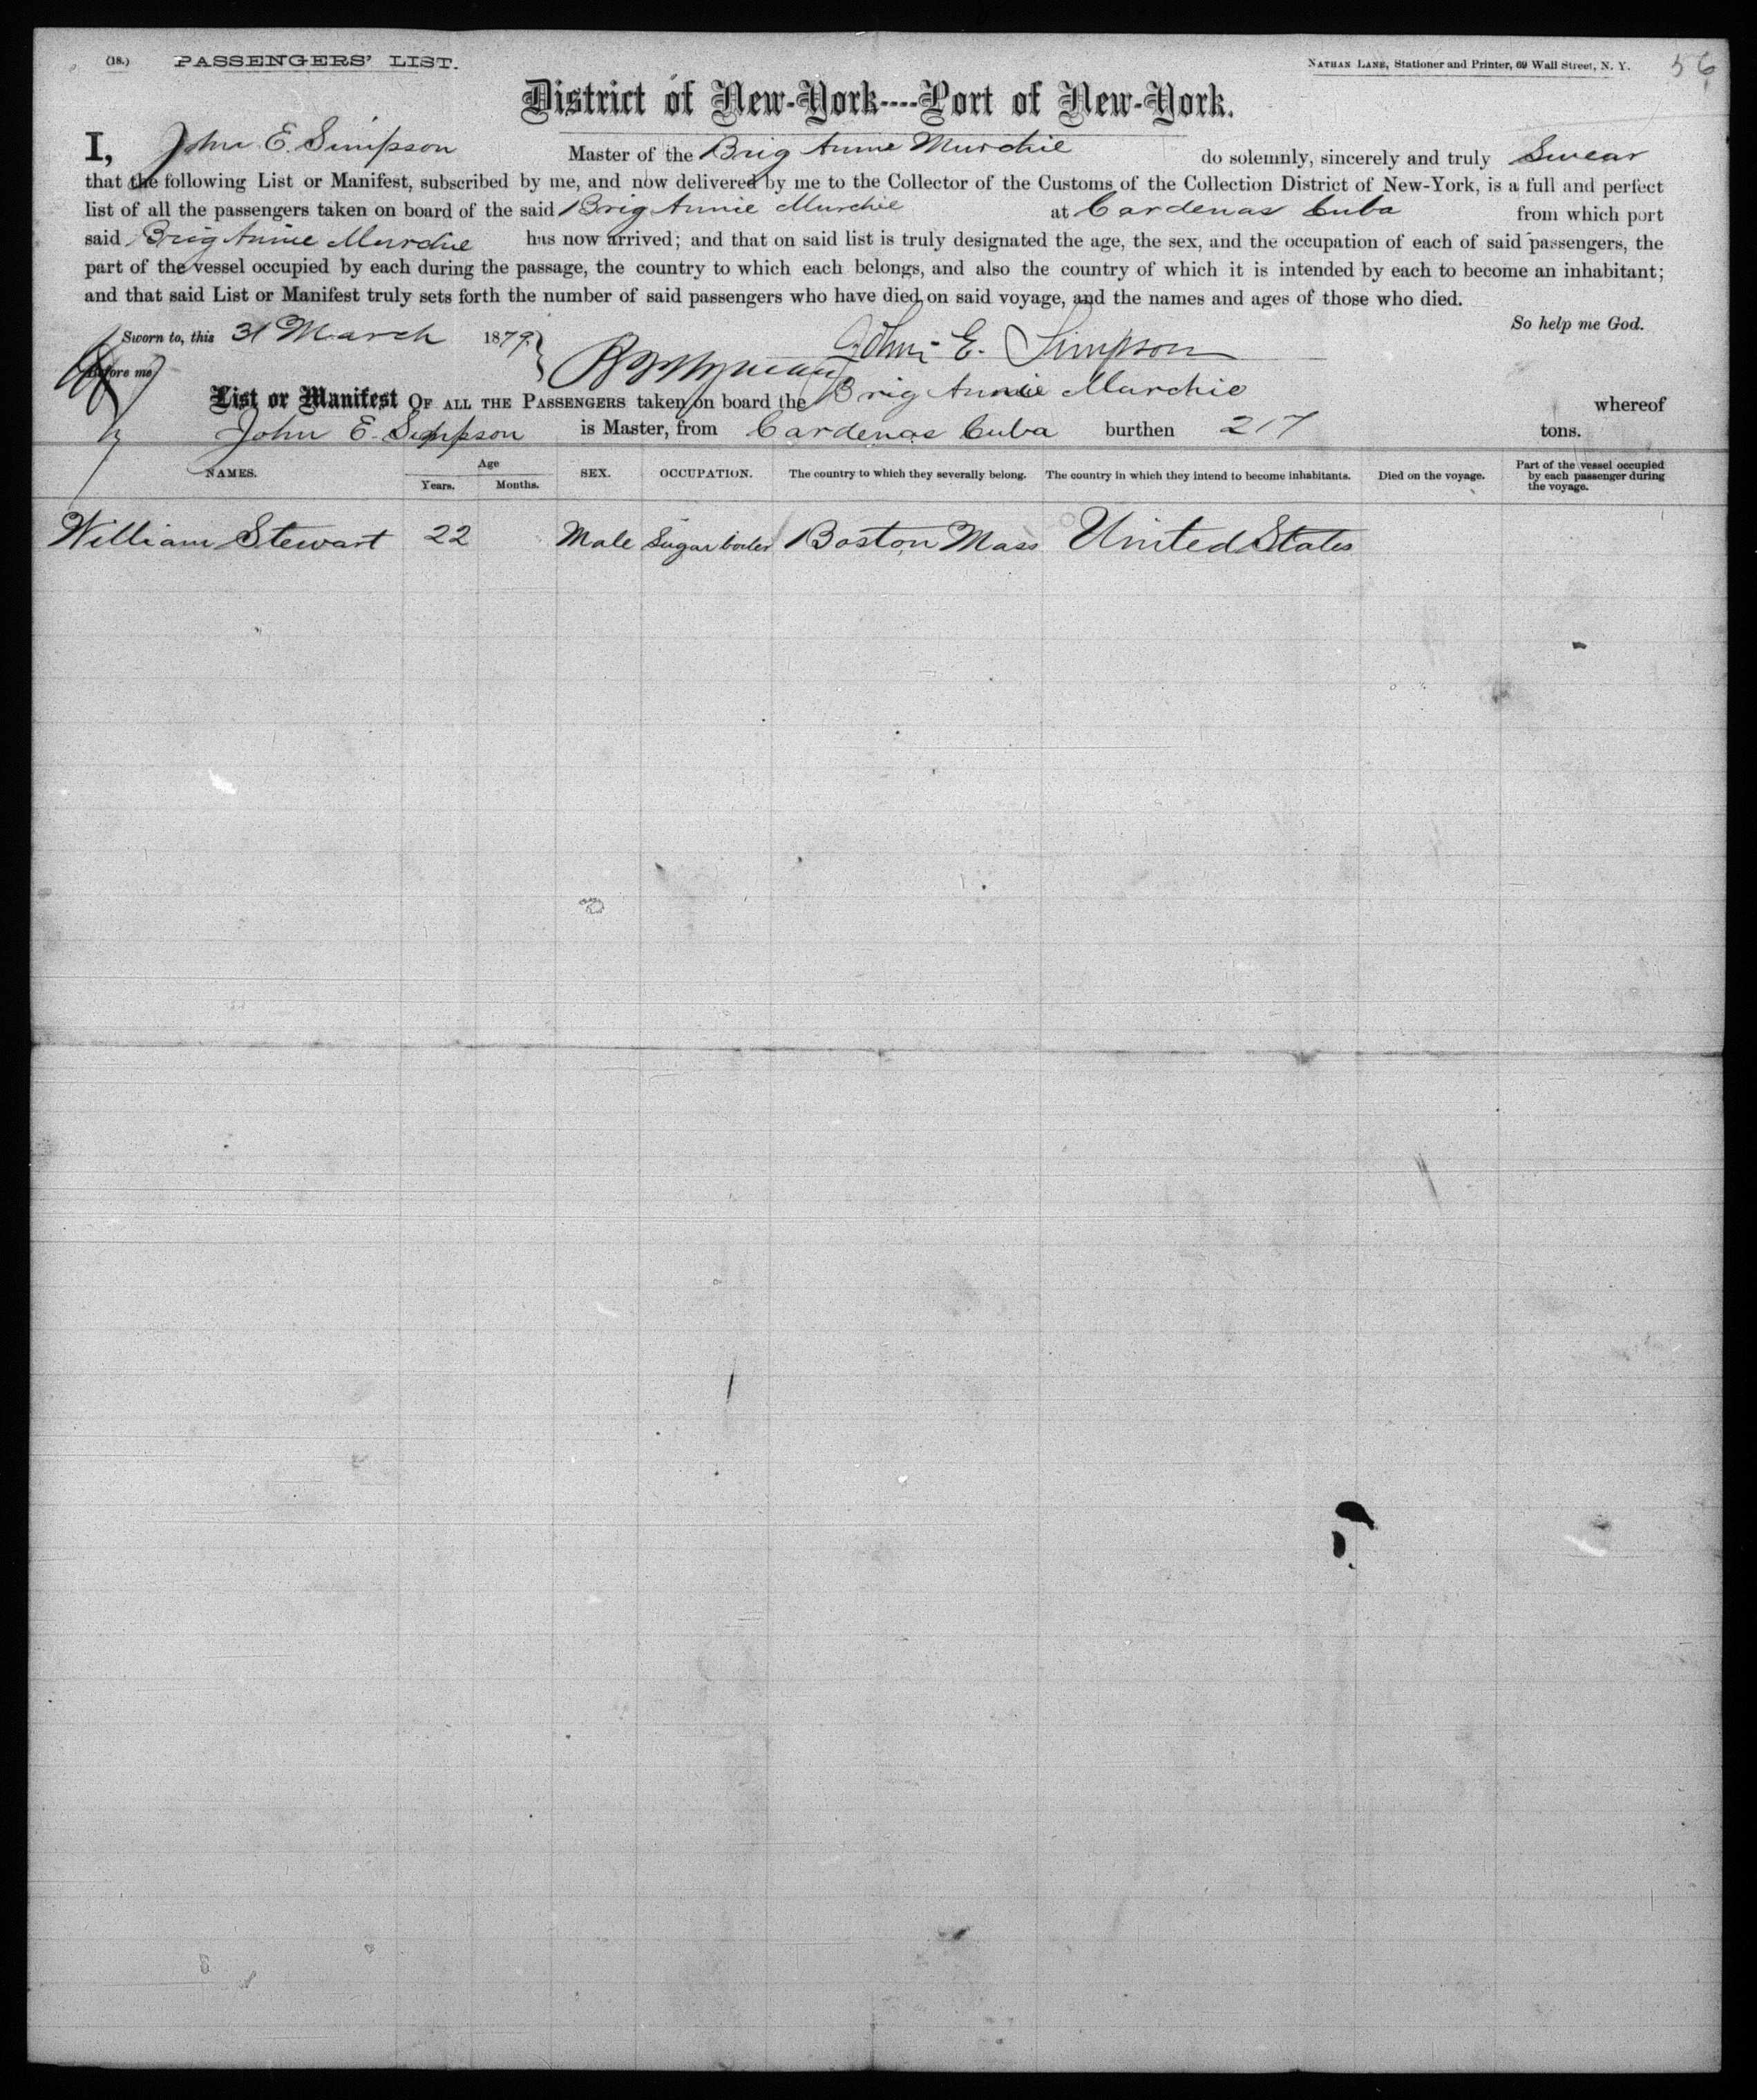 (18.) PASSENGERS' LIST. NATHAN LANE, Stationer and Printer, 69 Wall Street, N. Y. 56
District of New-York----Port of New-York.
I, John E. Simpson Master of the Brig Annie Murchie do solemnly, sincerely and truly Swear
that the following List or Manifest, subscribed by me, and now delivered by me to the Collector of the Customs of the Collection District of New-York, is a full and perfect
list of all the passengers taken on board of the said Brig Annie Murchie at Cardenas Cuba from which port
said Brig Annie Murchie has now arrived; and that on said list is truly designated the age, the sex, and the occupation of each of said passengers, the
part of the vessel occupied by each during the passage, the country to which each belongs, and also the country of which it is intended by each to become an inhabitant;
and that said List or Manifest truly sets forth the number of said passengers who have died on said voyage, and the names and ages of those who died.
So help me God.
Sworn to, this 31 March 1879. John E. Simpson
Before me
List or Manifest OF ALL THE PASSENGERS taken on board the Brig Annie Murchie whereof
John E. Simpson is Master, from Cardenas Cuba burthen 217 tons.
NAMES. Age Years. Months. SEX. OCCUPATION. The country to which they severally belong. The country in which they intend to become inhabitants. Died on the voyage. Part of the vessel occupied by each passenger during the voyage.
William Stewart 22 Male Sugar boiler Boston Mass United States